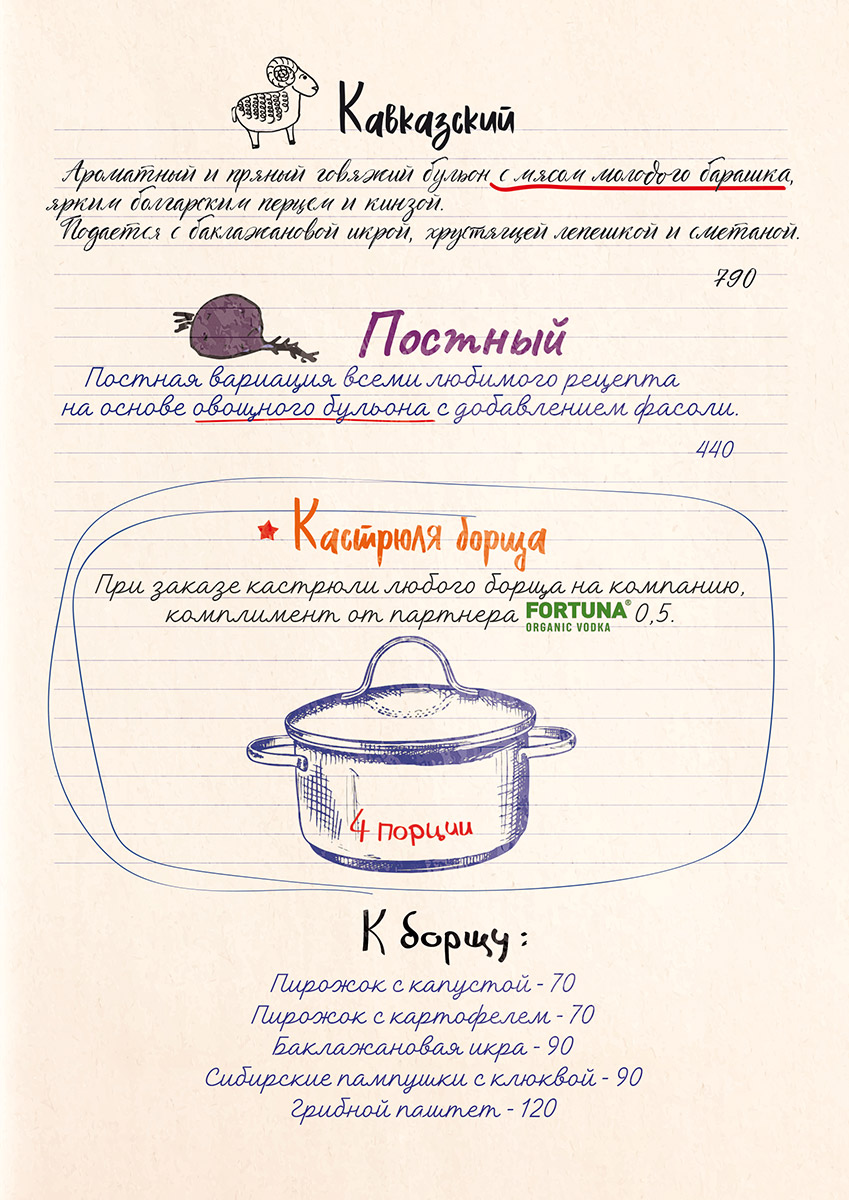 Кавказский
Ароматный и пряный говяжий бульон с мясом молодого барашка,
ярким болгарским перцем и кинзой.
Подается с баклажановой икрой, хрустящей лепешкой и сметаной.
790
Постный
Постная вариация всеми любимого рецепта
на основе овощного бульона с добавлением фасоли.
440
Кастрюля борща
При заказе кастрюли любого борща на компанию,
комплимент от партнера FORTUNA® 0,5.
ORGANIC VODKA
4 порции
К борщу:
Пирожок с капустой - 70
Пирожок с картофелем - 70
Баклажановая икра - 90
Сибирские пампушки с клюквой - 90
Грибной паштет - 120